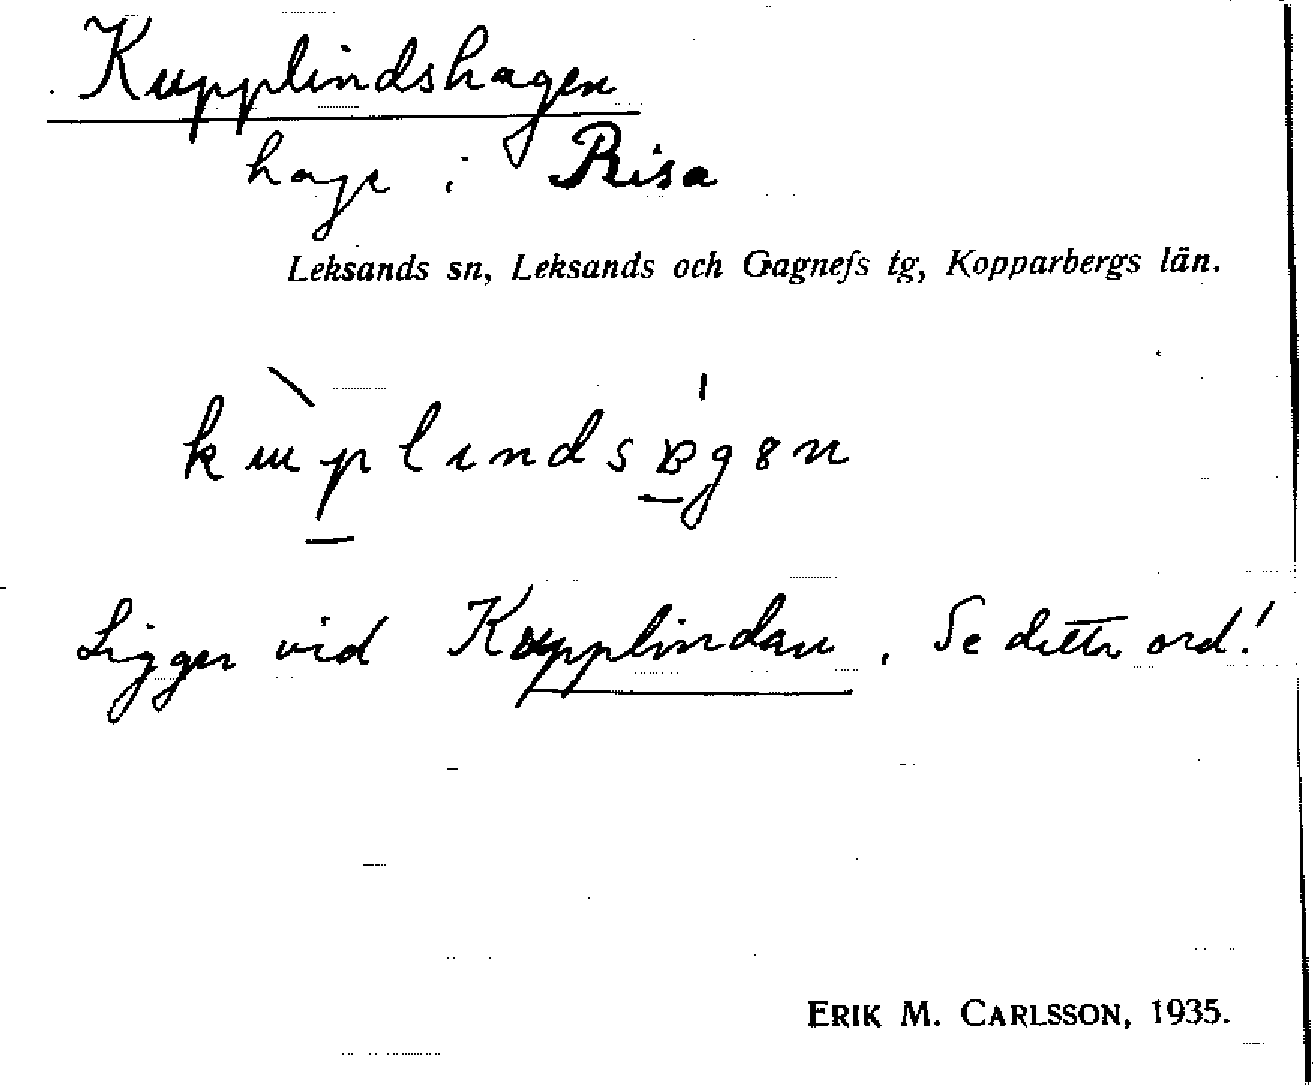 Kupplindshagen
hage i Risa
Leksands sn, Leksands och Gagnefs tg, Kopparbergs län.
Ligger vid Kupplindan. Se detta ord!
ERIK M. CARLSSON, 1935.